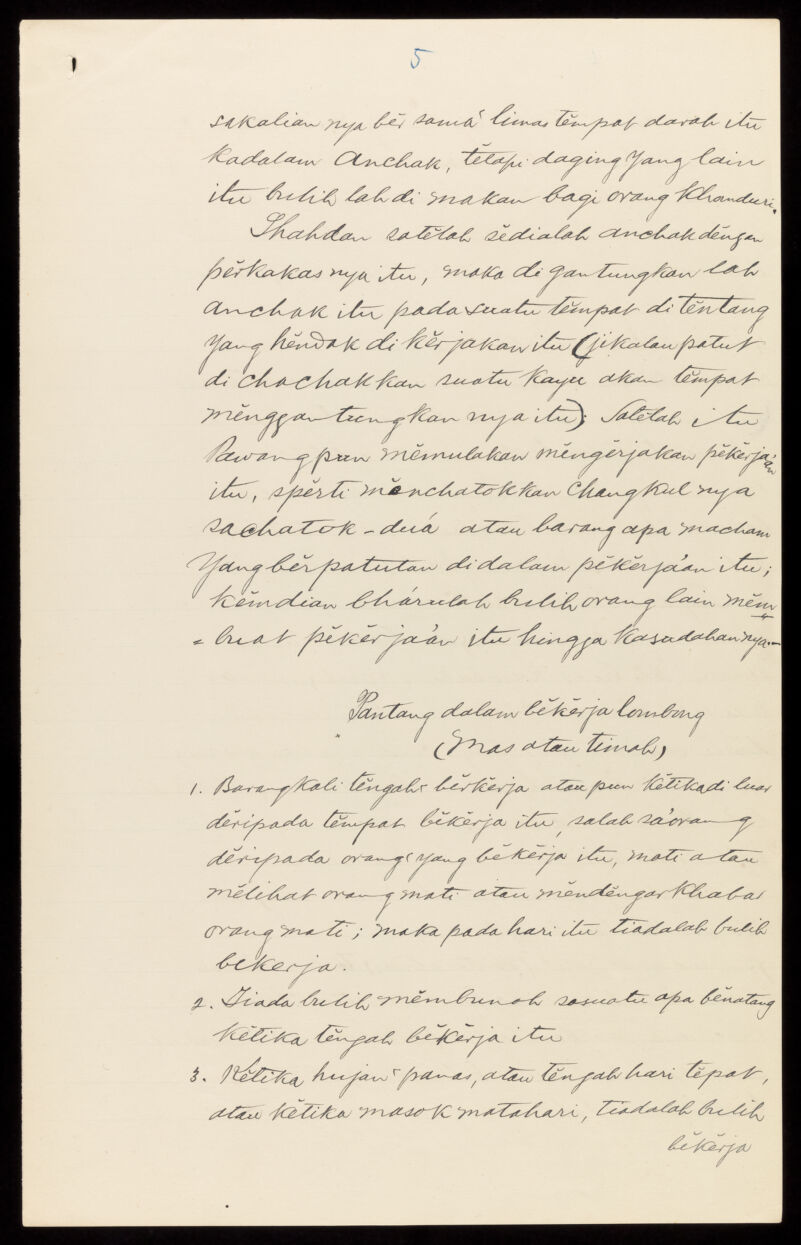 5
sakalian nya bĕr samá limas tĕmpat darah itu
kadalam Anchak, tĕtapi daging yang lain
itu bulih lah di makan bagi orang khanduri.
Shahdan satĕlah sĕdialah anchak dĕngan
pĕrkakas nya itu, maka di gantungkan lah
anchak itu pada suatu tĕmpat di tĕntang
yang hĕndak di kĕrjakan itu (jikalau patut
di chachakkan suatu kayu akan tĕmpat
mĕnggantungkan nya itu); Satĕlah itu
Pawang pun mĕmulakan mĕngĕrjakan pĕkĕrja'an
itu, spĕrti mĕnchatokkan changkul nya
sachatok-duá atau barang apa macham
Yang bĕrpatutan didalam pĕkĕrja'an itu;
kĕmdian bhárulah bulih orang lain mĕm
= buat pĕkĕrja'an itu hingga kasudahan nya.-
Pantang dalam bĕkĕrja lombong
(Mas atau timah)
1. Barangkali tĕngah' bĕrkĕrja atau pun kĕtika di luar
dĕripada tĕmpat bĕkĕrja itu, salah sa'orang
dĕripada orang' yang bĕkĕrja itu, mati atau
mĕlihat orang mati atau mĕndĕngar khabar
orang mati; maka pada hari itu tiadalah bulih
bekerja.
2. Tiada bulih mĕmbunoh sasuatu apa bĕnatang
kĕtika tĕngah bĕkĕrja itu
3. Kĕtika hujan' panas, atau tĕngah hari tĕpat,
atau kĕtika masok matahari, tiadalah bulih
bĕkĕrja